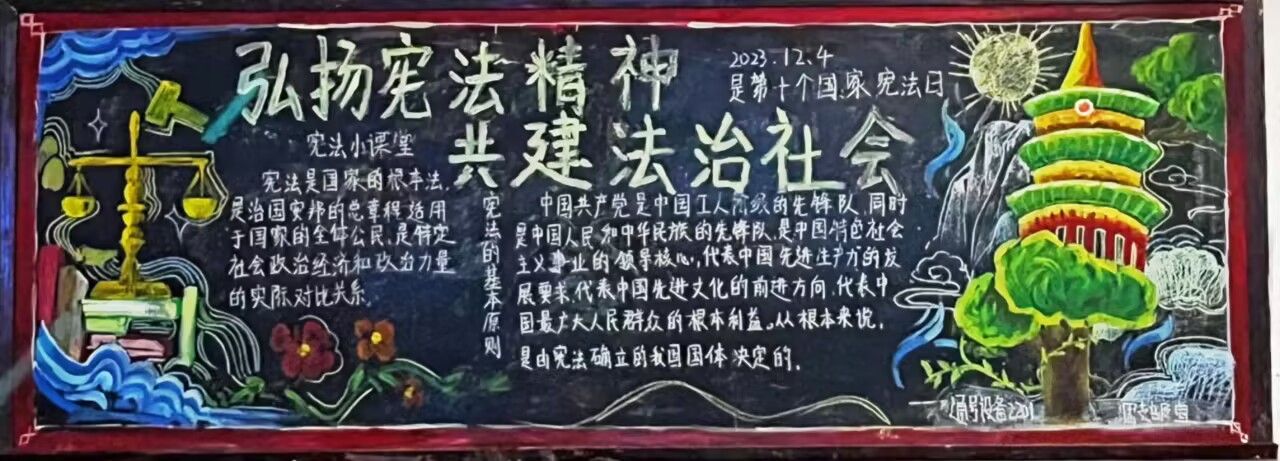 弘扬宪法精神
共建法治社会
2023.12.4
是第十个国家宪法日
宪法小课堂
宪法是国家的根本法,
是治国安邦的总章程,适用
于国家的全体公民,是特定
社会政治经济和政治力量
的实际对比关系。
宪法的基本原则
中国共产党是中国工人阶级的先锋队,同时
是中国人民和中华民族的先锋队,是中国特色社会
主义事业的领导核心,代表中国先进生产力的发
展要求,代表中国先进文化的前进方向,代表中
国最广大人民群众的根本利益。从根本来说,
是由宪法确立的我国国体决定的。
信号设备2201